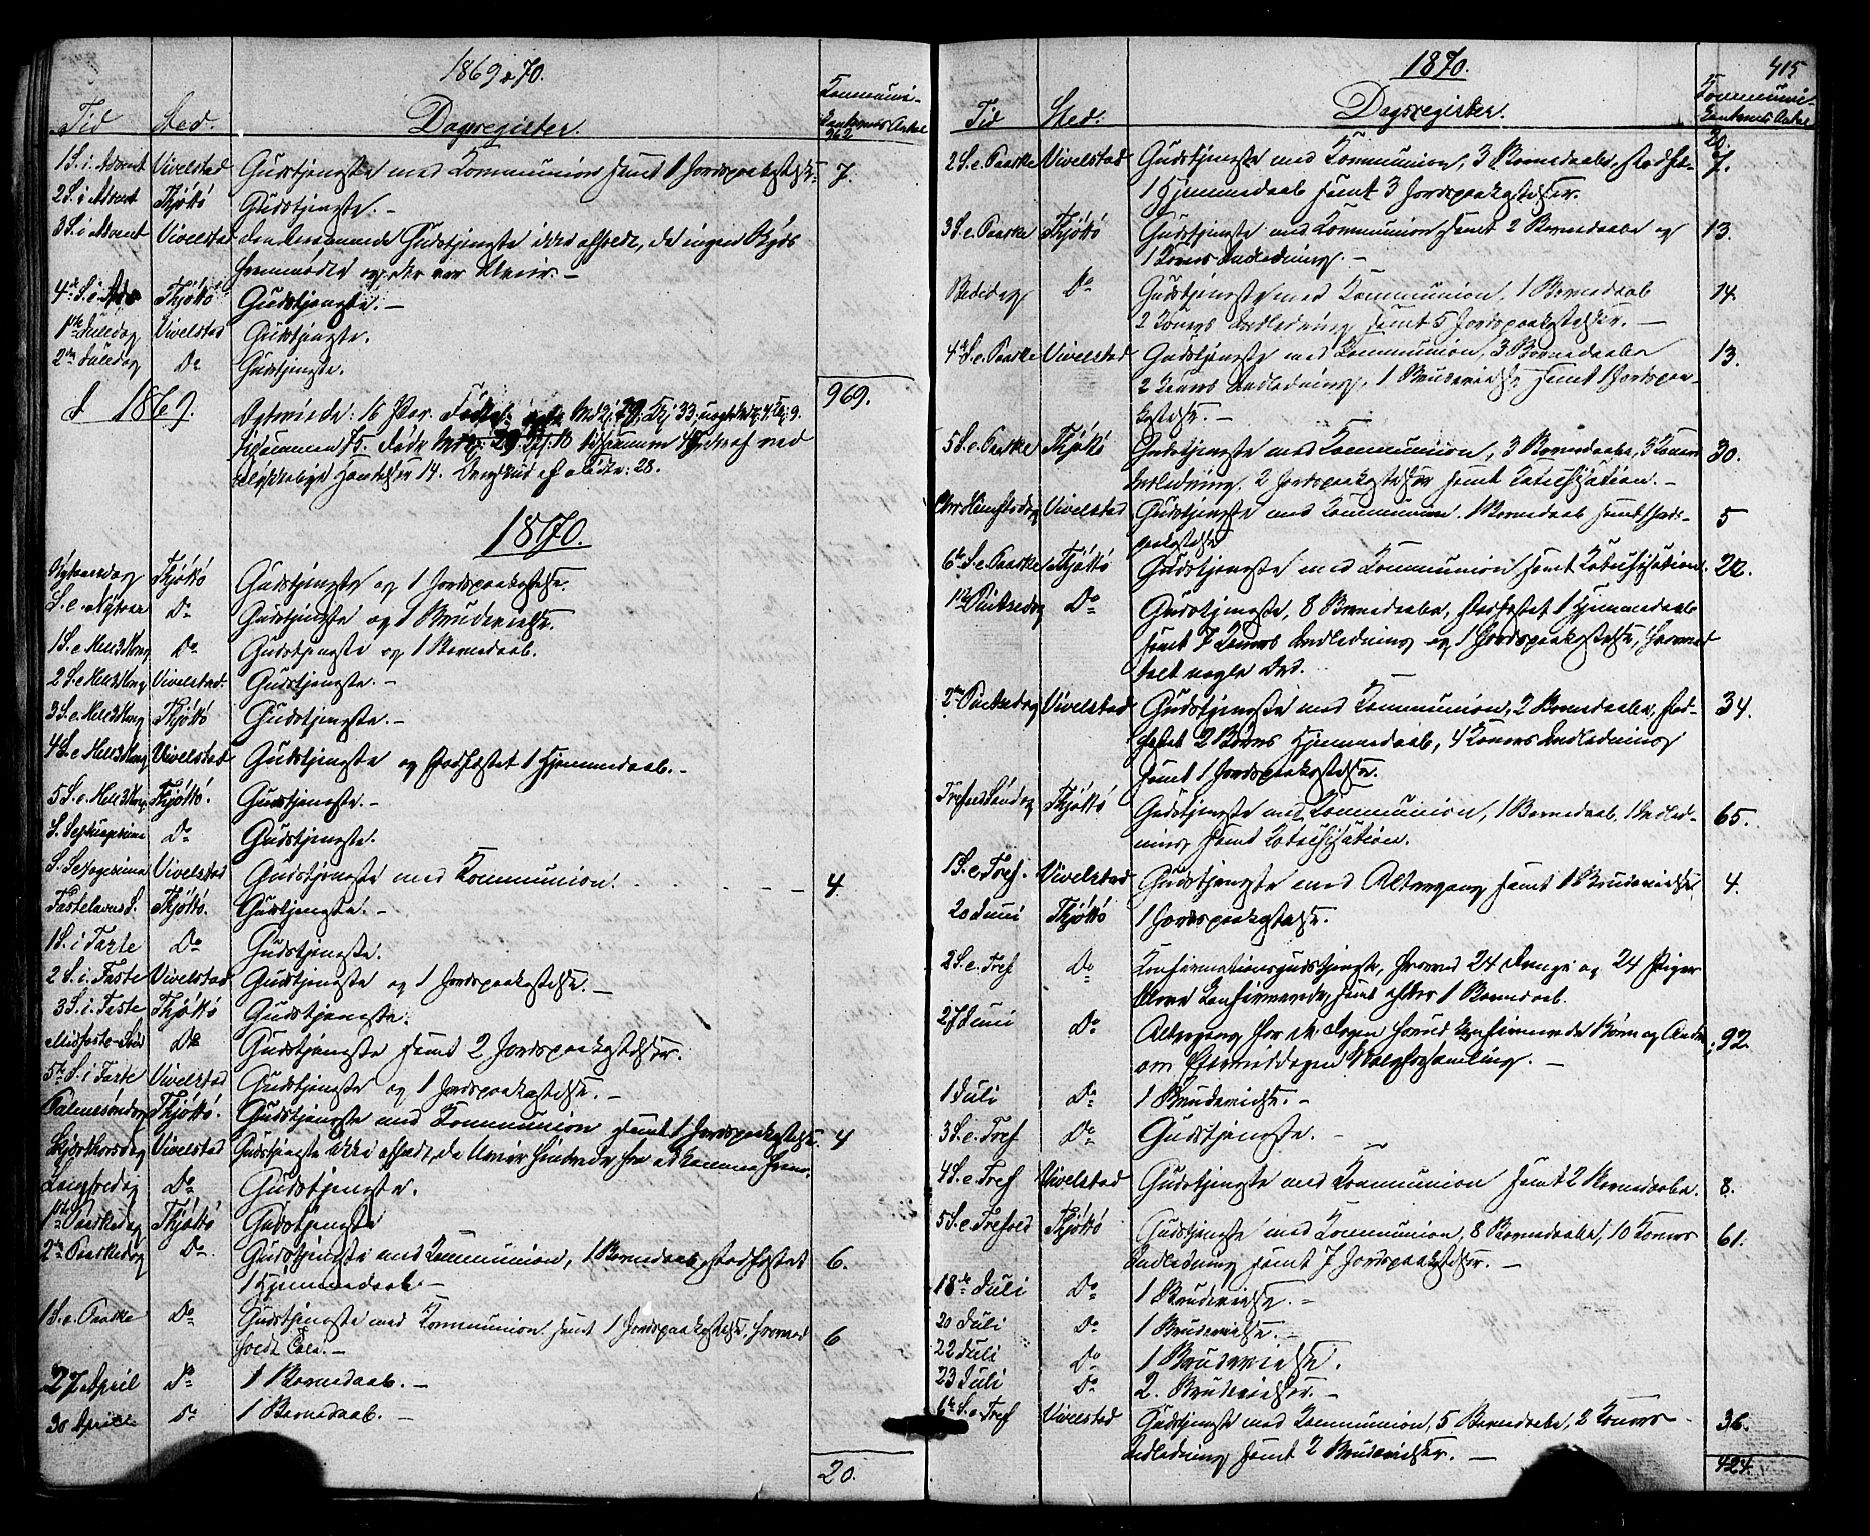 1869 & 70.
Tid Sted. Dagregister. Kommuni-
kanternes Antal
962
1 S. i Advent Vivelstad Gudstjeneste med Kommunion samt 1 Jordspaakastelse 7.
2 S. i Advent Thjøttø Gudstjeneste. -
3 S. i Advent Vivelstad den berammede Gudstjeneste ikke afholdt, da ingen Skyds
fremmødte og der var Uveir. -
4de S. i Adv. Thjøttø Gudstjeneste. -
1ste Juledag Vivelstad Gudstjeneste.
2den Juledag Do Gudstjeneste.
969.
I 1869. Ægteviede: 16 Par.
tilsammen 75.
ulykkelige Hændelser 14. 28.
1870.
Nytaarsdag Thjøttø Gudstjeneste og 1 Jordspaakastelse.
S. e. Nytaar Do Gudstjeneste og 1 Brudevielse.
1 S. e. Hell 3 Kong Do Gudstjeneste og 1 Barnedaab.
2 S. e. Hell 3 Kong Vivelstad. Gudstjeneste. -
3 S. e. Hell 3 Kong Thjøttø Gudstjeneste. -
4 S. e. Hell 3 Kong Vivelstad Gudstjeneste og stadfæstet 1 Hjemmedaab. -
5 S. e. Hell 3 Kong Thjøttø. Gudstjeneste. -
S. Septuagesima Do Gudstjeneste.
S. Sexagesima Vivelstad Gudstjeneste med Kommunion. 4.
Fastelavns S. Thjøttø. Gudstjeneste. -
1 S. i Faste Do Gudstjeneste.
2 S. i Faste Vivelstad Gudstjeneste og 1 Jordspaakastelse. -
3 S. i Faste Thjøttø Gudstjeneste.
Midfaste-Søn Do Gudstjeneste samt 2 Jordspaakastelser.
5te S. i Faste Vivelstad Gudstjeneste og 1 Jordspaakastelse. -
Palmesøndag Thjøttø. Gudstjeneste med Kommunion samt 1 Jordspaakastelse 4
Skjærthorsdag Vivelstad Gudstjeneste ikke afholdt, da Uveir hindrede fra at komme frem.
Langfredag Do Gudstjeneste.
1ste Paaskedag Thjøttø Gudstjeneste
2den Paaskedag Do. Gudstjeneste med Kommunion, 1 Barnedaab, stadfæstet 6.
1 Hjemmedaab. -
1 S. e. Paaske Do Gudstjeneste med Kommunion samt 1 Jordspaakastelse, hvorved 6
holdt Tale. -
27 April Do 1 Barnedaab. -
30 April Do 1 Barnedaab. -
20.
1870. 415
Tid Sted. Dagsregister. Kommuni-
kanternes Antal
20.
2 S. e. Paaske Vivelstad Gudstjeneste med Kommunion, 3 Barnedaabe, stadfæ- 7.
1 Hjemmedaab samt 3 Jordspaakastelser.
3 S. e. Paaske Thjøttø Gudstjeneste med Kommunion samt 2 Barnedaabe og 13.
1 Kones Indledning. -
Bededag Do Gudstjeneste med Kommunion, 1 Barnedaab 14.
2 Koners Indledning samt 5 Jordspaakastelser. -
4de S. e. Paaske Vivelstad Gudstjeneste med Kommunion, 3 Barnedaabe 13.
2 Koners Indledning, 1 Brudevielse samt 1 Jordspaa-
kastelse. -
5 S. e. Paaske Thjøttø Gudstjeneste med Kommunion, 3 Barnedaabe, 3 Koners 30.
Indledning, 2 Jordspaakastelser samt Katechisation. -
Chr. Himfartsdag Vivelstad Gudstjeneste med Kommunion. 1 Barnedaab samt Jords- 5
paakastelse
6te S. e. Paaske Thjøttø Gudstjeneste med Kommunion samt Katechisation. 22.
1ste Pintsedag Do Gudstjeneste, 8 Barnedaabe, stadfæstet 1 Hjemmedaab
samt 7 Koners Indledning og 1 Jordspaakastelse, hvorved
talt nogle Ord.
2den Pintsedag Vivelstad Gudstjeneste med Kommunion, 2 Barnedaabe, stad- 34.
fæstet 2 Børns Hjemmedaab, 4 Koners Indledning
samt 1 Jordspaakastelse.
Trefold. Søndag Thjøttø Gudstjeneste med Kommunion, 1 Barnedaab, 1 Indled- 65.
ning samt Katechisation.
1 S. e. Tref. Vivelstad Gudstjeneste med Altergang samt 1 Brudevielse 4.
20 Juni Thjøttø 1 Jordspaakastelse.
2 S. e. Tref Do Konfirmationsgudstjeneste, hvorved 24 Drenge og 24 Piger
bleve Konfirmerede, samt efter 1 Barnedaab.
27 Juni Do Altergang for de Dagen forud Konfirmerede Børn og Andre; 92.
om Eftermiddagen Valgforsamling. -
1 Juli Do 1 Brudevielse. -
3 S. e. Tref Do Gudstjeneste. -
4 S. e. Tref Vivelstad Gudstjeneste med Kommunion samt 2 Barnedaabe. 8.
5 S. e. Trefold Thjøttø Gudstjeneste med Kommunion, 8 Barnedaabe, 10 Koners 61.
Indledning samt 7 Jordspaakastelser. -
18de Juli Do 1 Brudevielse. -
20 Juli Do 1 Brudevielse. -
22 Juli Do 1 Brudevielse.
23 Juli Do 2. Brudevielser. -
6te S. e. Tref Vivelstad Gudstjeneste med Kommunion, 5 Barnedaabe, 2 Koners 36.
Indledning samt 2 Brudevielser. -
424.